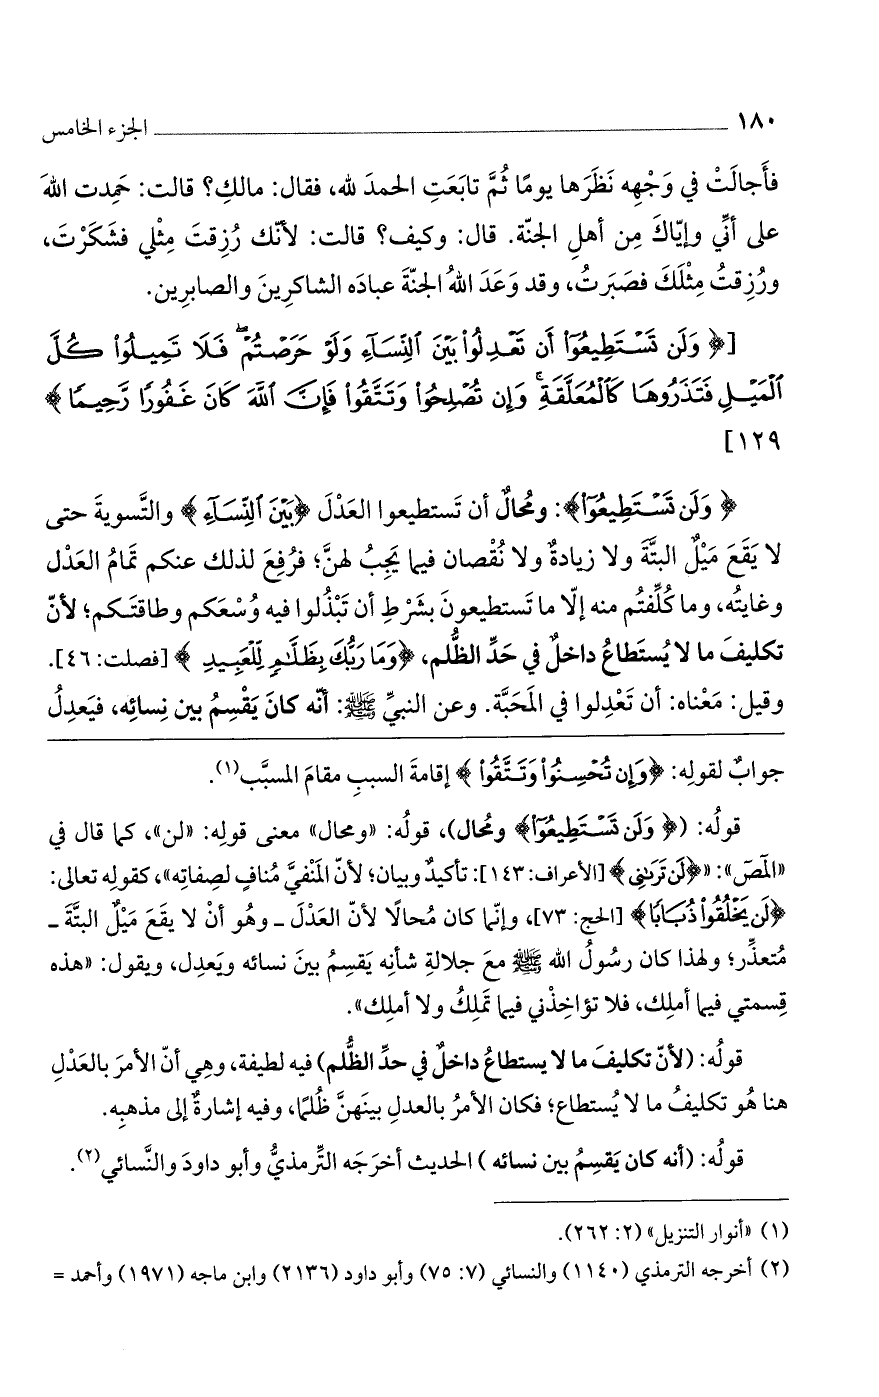 ١٨٠ ــــــــــــــــــــــــــــــــــــــــ الجزء الخامس
فأَجالَتْ في وَجْهِه نَظَرَها يومًا ثُمَّ تابَعَتِ الحمدَ لله، فقال: مالكِ؟ قالت: حَمِدت اللهَ
على أنِّي وإيّاكَ مِن أهلِ الجنّة. قال: وكيف؟ قالت: لأنّك رُزِقتَ مِثْلي فشَكَرْتَ،
ورُزِقتُ مِثْلَكَ فصَبَرتُ، وقد وَعَدَ اللهُ الجنّةَ عبادَه الشاكرِينَ والصابرِين.
[﴿ وَلَن تَسْتَطِيعُوٓا۟ أَن تَعْدِلُوا۟ بَيْنَ ٱلنِّسَآءِ وَلَوْ حَرَصْتُمْ ۖ فَلَا تَمِيلُوا۟ كُلَّ
ٱلْمَيْلِ فَتَذَرُوهَا كَٱلْمُعَلَّقَةِ ۚ وَإِن تُصْلِحُوا۟ وَتَتَّقُوا۟ فَإِنَّ ٱللَّهَ كَانَ غَفُورًا رَّحِيمًا ﴾
١٢٩]
﴿ وَلَن تَسْتَطِيعُوٓا۟﴾: ومُحالٌ أن تَستطيعوا العَدْلَ ﴿بَيْنَ ٱلنِّسَآءِ ﴾ والتَّسويةَ حتى
لا يَقَعَ مَيْلٌ البتَّةَ ولا زيادةٌ ولا نُقْصان فيما يَجِبُ لهنَّ؛ فرُفِعَ لذلك عنكم تَمامُ العَدْل
وغايتُه، وما كُلِّفتُم منه إلّا ما تَستطيعونَ بشَرْطِ أن تَبْذُلوا فيه وُسْعَكم وطاقتَكم؛ لأنّ
تكليفَ ما لا يُستَطاعُ داخلٌ في حَدِّ الظُّلم، ﴿وَمَا رَبُّكَ بِظَلَّٰمٍ لِّلْعَبِيدِ ﴾ [فصلت: ٤٦].
وقيل: مَعْناه: أن تَعْدِلوا في المَحَبَّة. وعن النبيِّ ﷺ: أنّه كانَ يَقْسِمُ بين نِسائِه، فيَعدِلُ
جوابٌ لقولِه: ﴿وَإِن تُحْسِنُوا۟ وَتَتَّقُوا۟ ﴾ إقامةَ السببِ مقامَ المسبَّب(١).
قولُه: (﴿ وَلَن تَسْتَطِيعُوٓا۟﴾ ومُحال)، قولُه: «ومحال» معنى قولِه: «لن»، كما قال في
«المٓصٓ»: «﴿لَن تَرَىٰنِى﴾ [الأعراف: ١٤٣]: تأكيدٌ وبيان؛ لأنّ المَنْفيَّ مُنافٍ لصِفاتِه»، كقولِه تعالى:
﴿لَن يَخْلُقُوا۟ ذُبَابًا﴾ [الحج: ٧٣]، وإنّما كان مُحالًا لأنّ العَدْلَ ـ وهو أنْ لا يقَعَ مَيْلٌ البتَّةَ ـ
مُتعذِّر؛ ولهذا كان رسُولُ الله ﷺ معَ جلالةِ شأنِه يَقسِمُ بينَ نسائه ويَعدِل، ويقول: «هذه
قِسمتي فيما أملِك، فلا تؤاخِذْني فيما تَملِكُ ولا أملِك».
قولُه: (لأنّ تكليفَ ما لا يستطاعُ داخلٌ في حدِّ الظُّلم) فيه لطيفة، وهِي أنّ الأمرَ بالعَدْلِ
هنا هُو تكليفُ ما لا يُستطاع؛ فكان الأمرُ بالعدلِ بينَهنَّ ظُلمًا، وفيه إشارةٌ إلى مذهبِه.
قولُه: (أنه كان يَقسِمُ بين نسائه ) الحديث أخرَجَه التِّرمذيُّ وأبو داودَ والنَّسائي(٢).
(١) «أنوار التنزيل» (٢: ٢٦٢).
(٢) أخرجه الترمذي (١١٤٠) والنسائي (٧: ٧٥) وأبو داود (٢١٣٦) وابن ماجه (١٩٧١) وأحمد =